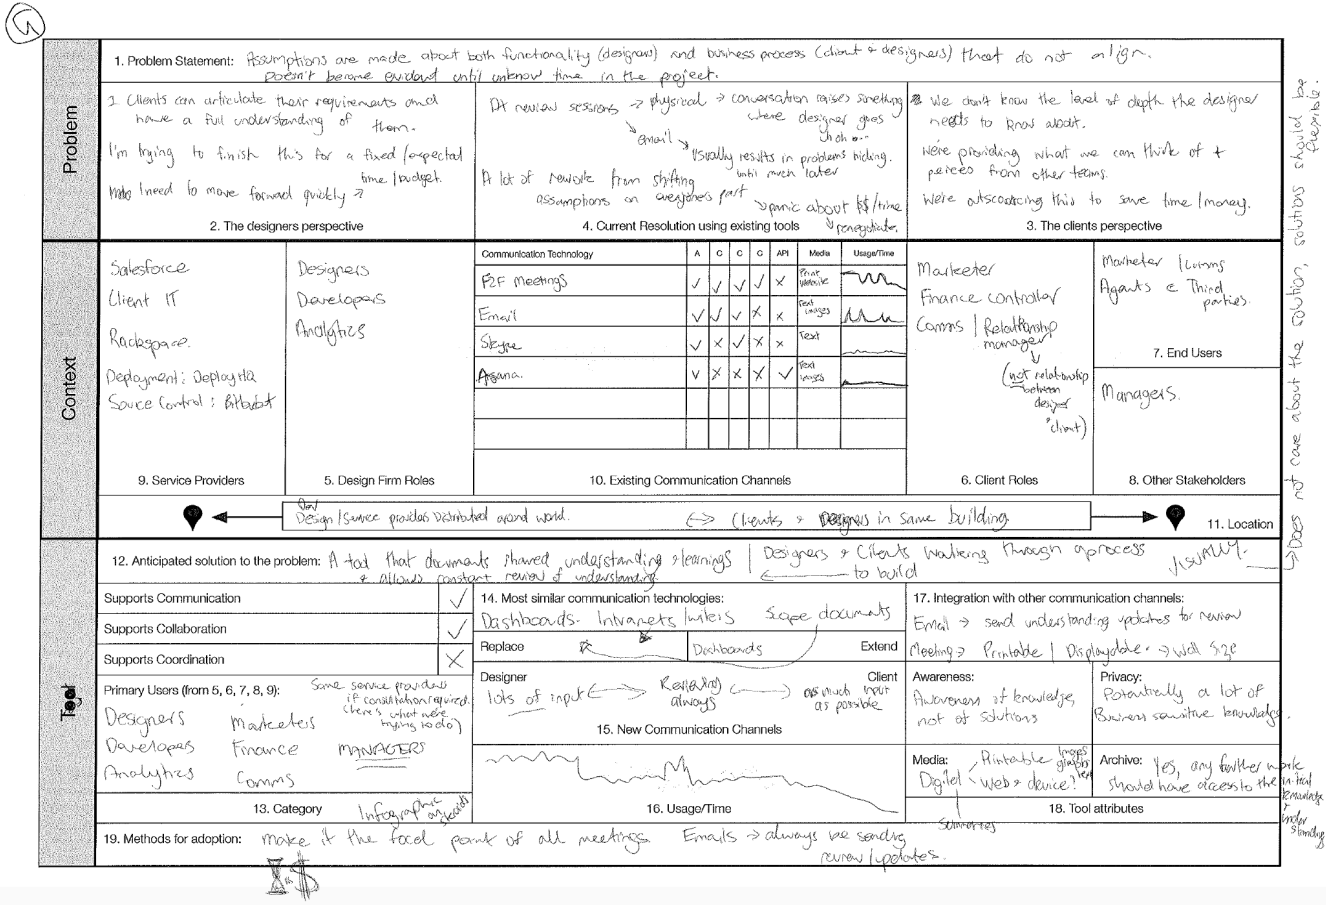 Problem
1. Problem Statement: Assumptions are made about both functionality (designers) and business process (client + designers) that do not align.
Doesn't become evident until unknow time in the project.
Clients can articulate their requirements and
have a full understanding of them.
I'm trying to finish this for a fixed/expected
time/budget.
I need to move forward quickly
2. The designers perspective
review sessions → physical → conversation raises something
where designer goes
uh oh...
email
Usually results in problems hiding
until much later
A lot of rework from shifting
assumptions on everyone's part
panic about $$/time
renegotiate.
4. Current Resolution using existing tools
We don't know the level of depth the designer
needs to know about.
We're providing what we can think of +
pieces from other teams.
We're outsourcing this to save time/money.
3. The clients perspective
Context
Salesforce
Client IT
Rackspace.
Deployment: DeployHQ
Source Control:
9. Service Providers
Designers
Developers
Analytics
5. Design Firm Roles
Communication Technology A C C C API Media Usage/Time
F2F Meetings ✓ ✓ ✓ ✓ x Print
Website
Email ✓ ✓ ✓ x x Text
images
Skype ✓ x ✓ x x Text
Asana. ✓ x x x ✓ Text
images
10. Existing Communication Channels
Marketer
Finance controller
Comms | Relationship
manager
(not relationship
between
designer
client)
6. Client Roles
Marketer | Comms
Agents Third
parties.
7. End Users
Managers.
8. Other Stakeholders
Design/Service providers Distributed around world. ↔ Clients + Designers in same building
11. Location
Tool
12. Anticipated solution to the problem: A tool that documents shared understanding + learnings | Designers + Clients working through a process
+ allows constant review of understanding. to build
VISUALLY.
Supports Communication ✓
Supports Collaboration ✓
Supports Coordination X
Primary Users (from 5, 6, 7, 8, 9): Some service providers
if consultation required.
(here's what we're
trying to do)
Designers Marketers
Developers Finance MANAGERS
Analytics Comms
13. Category
Infographic
on steroids
14. Most similar communication technologies:
Dashboards. Intranets/wikis Scope documents
Replace Dashboards Extend
Designer Client
lots of input ↔ Reviewing
always ↔ as much input
as possible
15. New Communication Channels
16. Usage/Time
17. Integration with other communication channels:
Email → send understanding updates for review
Meeting → Printable | Displayable → Wall Size
Awareness:
Awareness of knowledge,
not of solutions
Privacy:
Potentially a lot of
Business sensitive knowledge.
Media: Printable images
graphs
text
Digital Web + device?
Summaries
Archive: Yes, any further work
should have access to the initial
knowledge
+
understanding
18. Tool attributes
19. Methods for adoption: make it the focal point of all meetings. Emails → always be sending
review/updates.
$
Does not care about the solution, solutions should be
flexible.